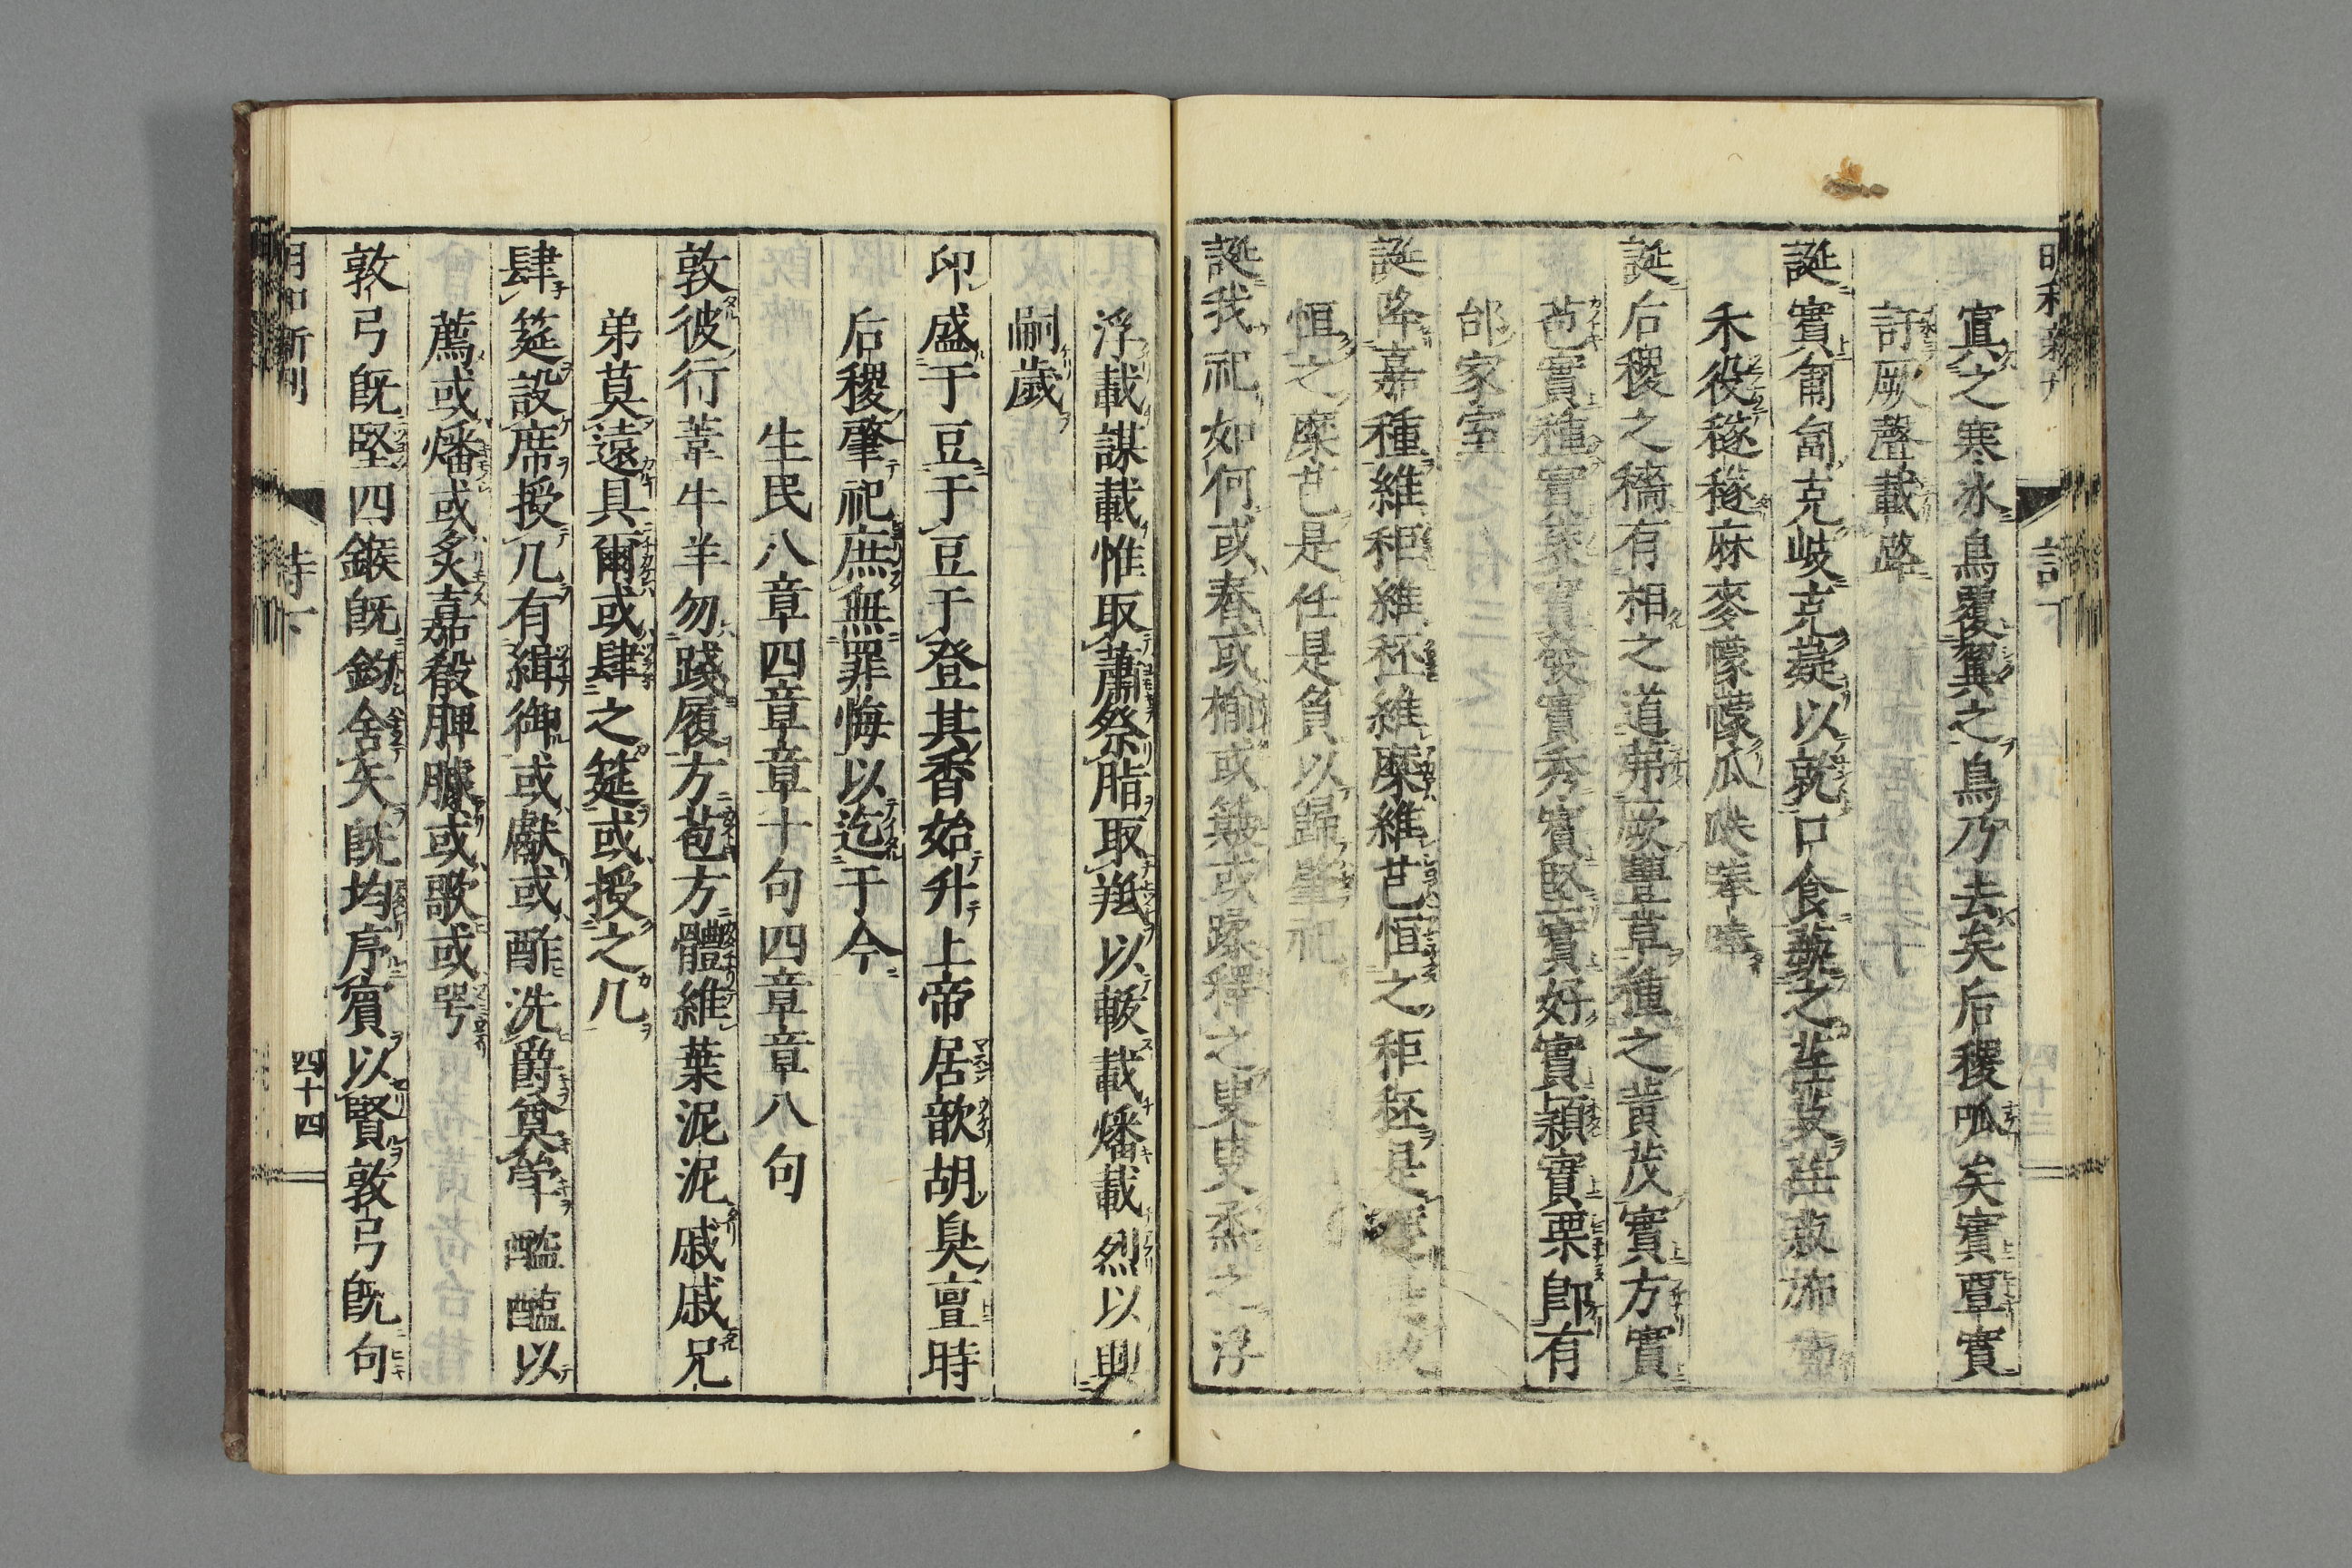 寘之寒冰鳥覆翼之鳥乃去矣后稷呱矣實覃實
訏厥聲載路
誕實匍匐克岐克薿以就口食蓺之荏菽荏菽斾斾
禾役穟穟麻麥幪幪瓜瓞唪唪
誕后稷之穡有相之道茀厥豐草種之黃茂實方實
苞實種實褎實發實秀實堅實好實穎實栗即有
邰家室
誕降嘉種維秬維秠維穈維芑恒之秬秠是穫是畝
恒之穈芑是任是負以歸肇祀
誕我祀如何或舂或揄或簸或蹂釋之叟叟烝之浮
浮載謀載惟取蕭祭脂取羝以軷載燔載烈以興
嗣歲
卬盛于豆于豆于登其香始升上帝居歆胡臭亶時
后稷肇祀庶無罪悔以迄于今
生民八章四章章十句四章章八句
敦彼行葦牛羊勿踐履方苞方體維葉泥泥戚戚兄
弟莫遠具爾或肆之筵或授之几
肆筵設席授几有緝御或獻或酢洗爵奠斝醓醢以
薦或燔或炙嘉殽脾臄或歌或咢
敦弓既堅四鍭既鈞舍矢既均序賓以賢敦弓既句
詩下
四十四